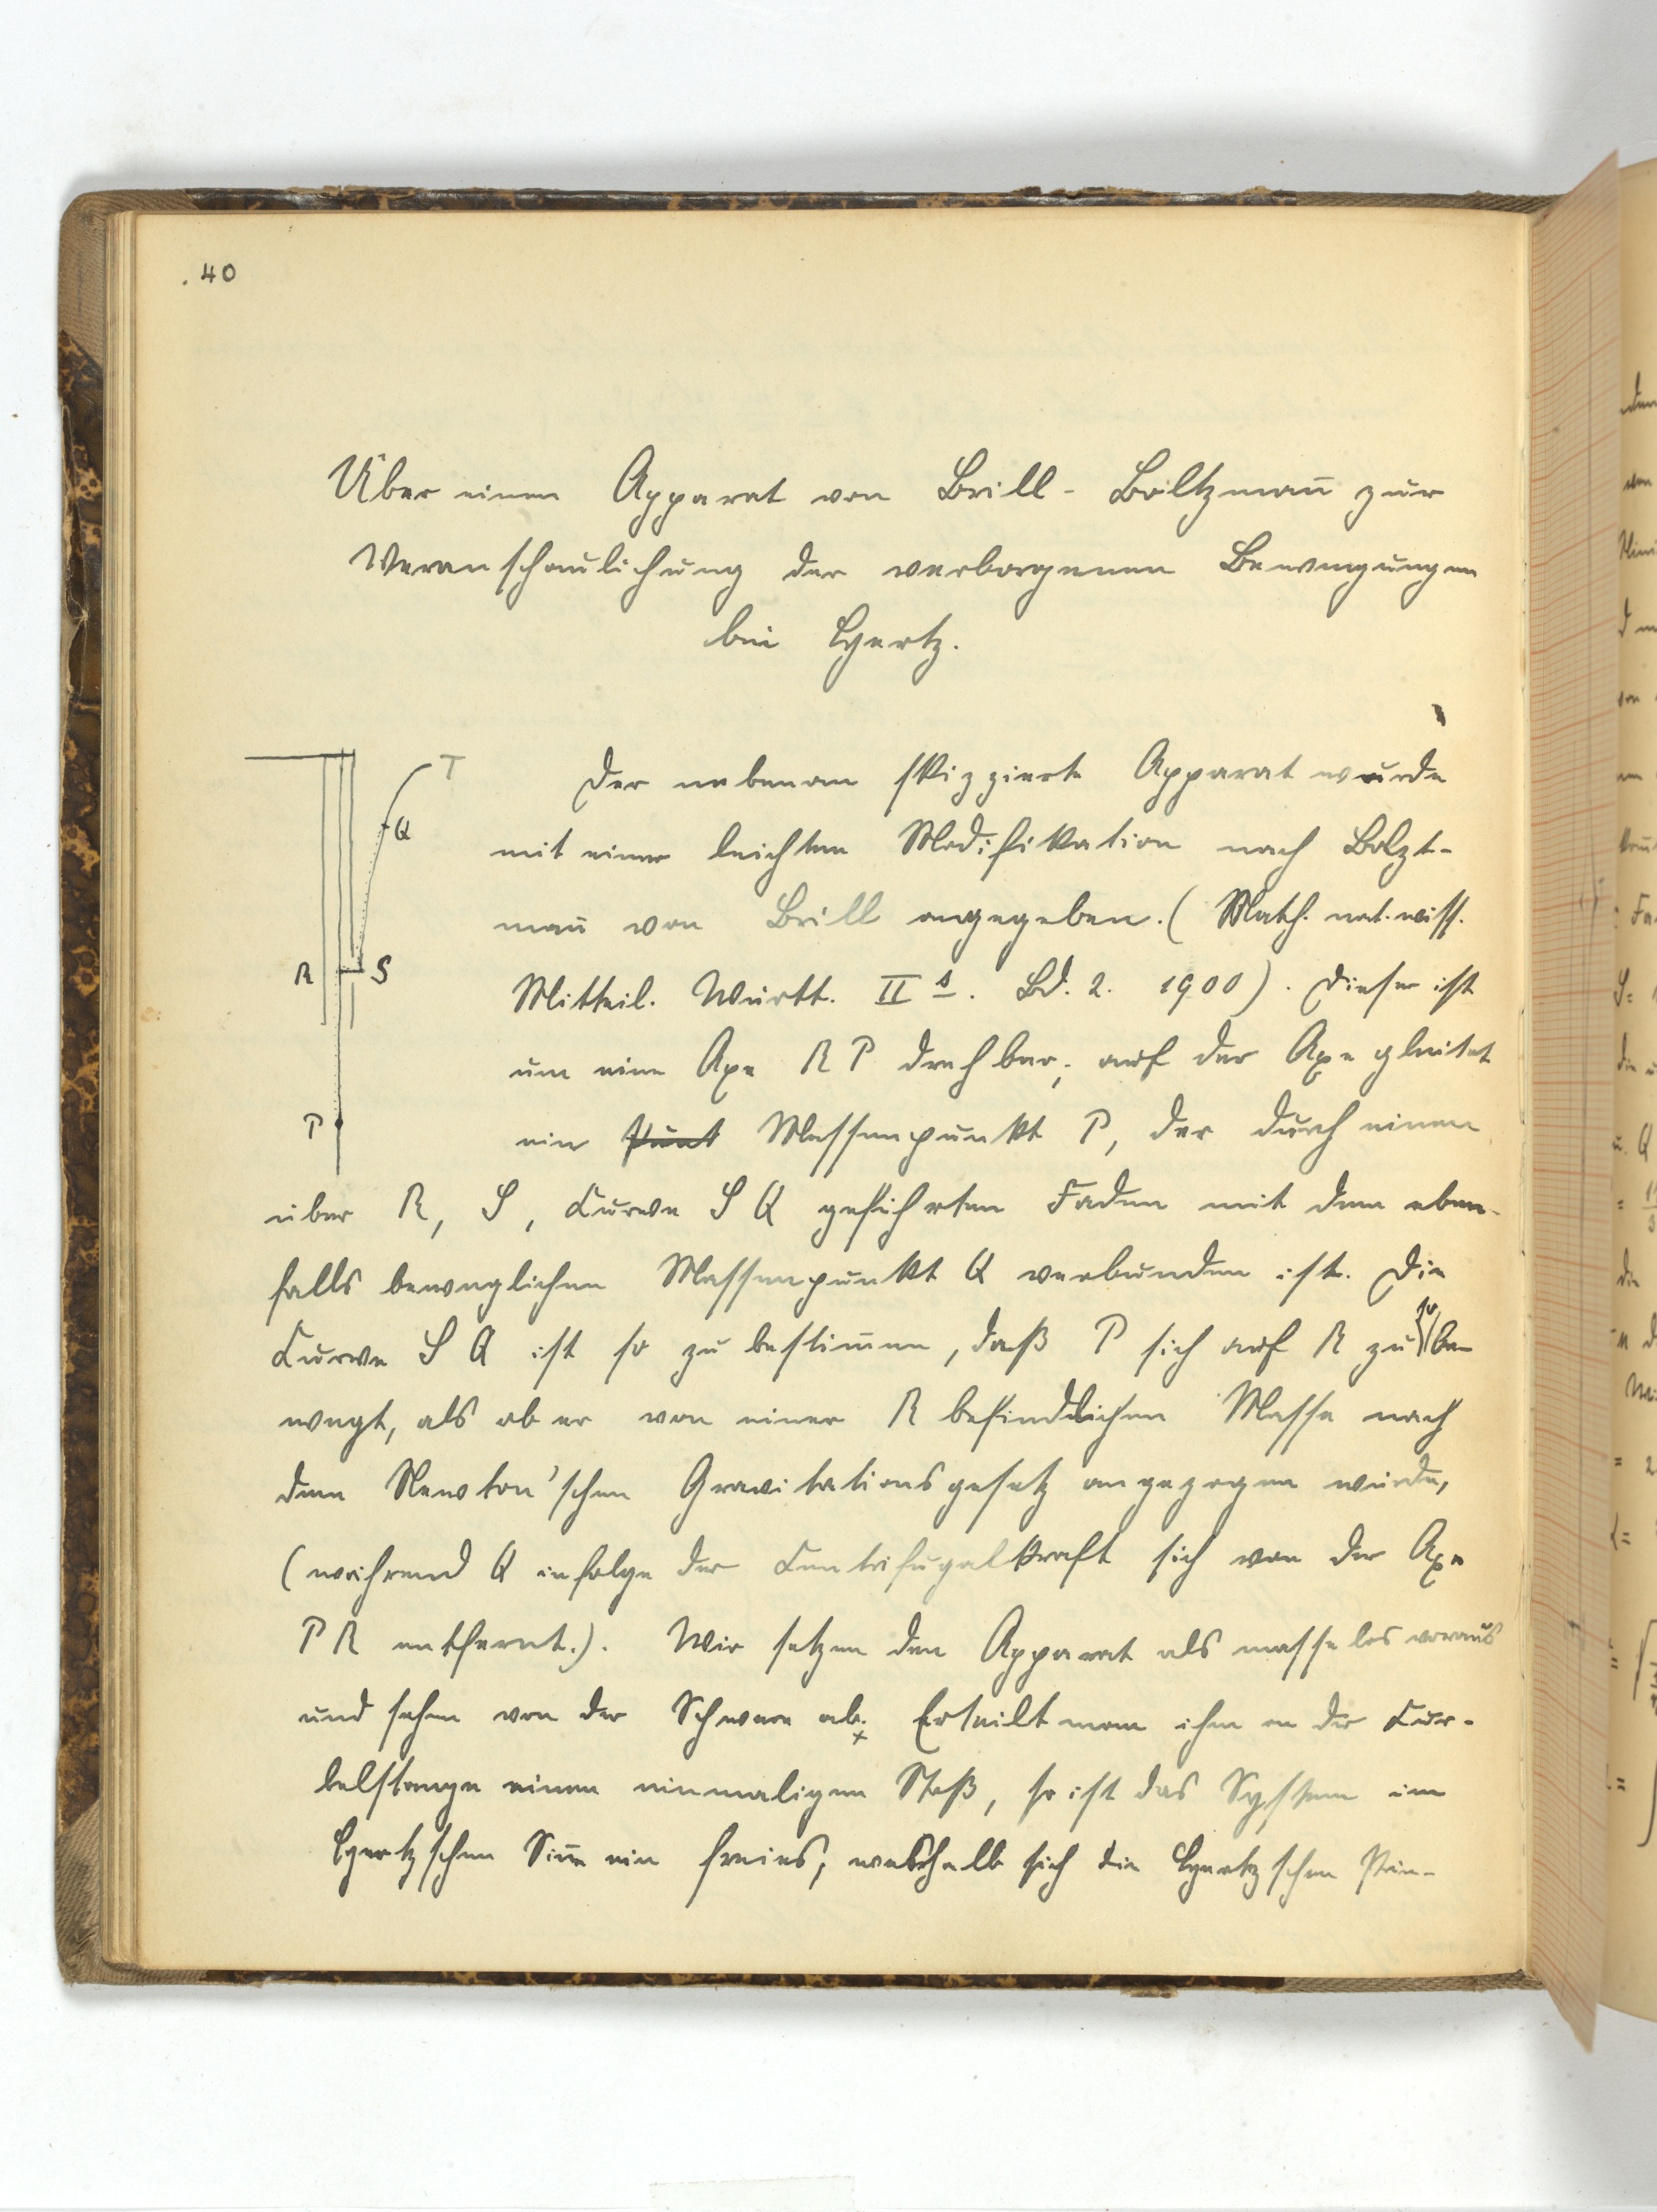 40
Über einen Apparat von Brill - Boltzman̄ zur
Veranschaulichung der verborgenen Bewegungen
bei Hertz.
T
Q
R
S
P
Der nebenan skizzierte Apparat wurde
mit einer leichten Modifikation nach Bolzt-
man̄ von Brill angegeben. (Math. nat. wiss.
Mitteil. Württ. II s. Bd. 2. 1900). Dieser ist
um eine Axe RP drehbar; auf der Axe gleitet
ein Punt Massenpunkt P, der durch einen
über R, S, Curve S Q geführten Faden mit dem eben-
falls beweglichen Massenpunkt Q verbunden ist. Die
Curve S Q ist so zu bestim̄en, daß P sich auf R zu so be-
wegt, als ob er von einer R befindlichen Masse nach
dem Newton'schen Gravitationsgesetz angezogen würde,
(während Q infolge der Centrifugalkraft sich von der Axe
PR entfernt.). Wir setzen den Apparat als masselos voraus
und sehen von der Schwere ab. Erteilt man ihm an der Cur-
belstange einen einmaligen Stoß, so ist das System im
Hertzschen Sin̄e ein freies, weshalb sich die Hertzschen Prin-